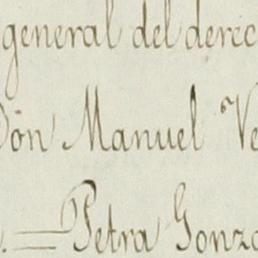 general del derec
Don Manuel Ve
.= Petra Gonza